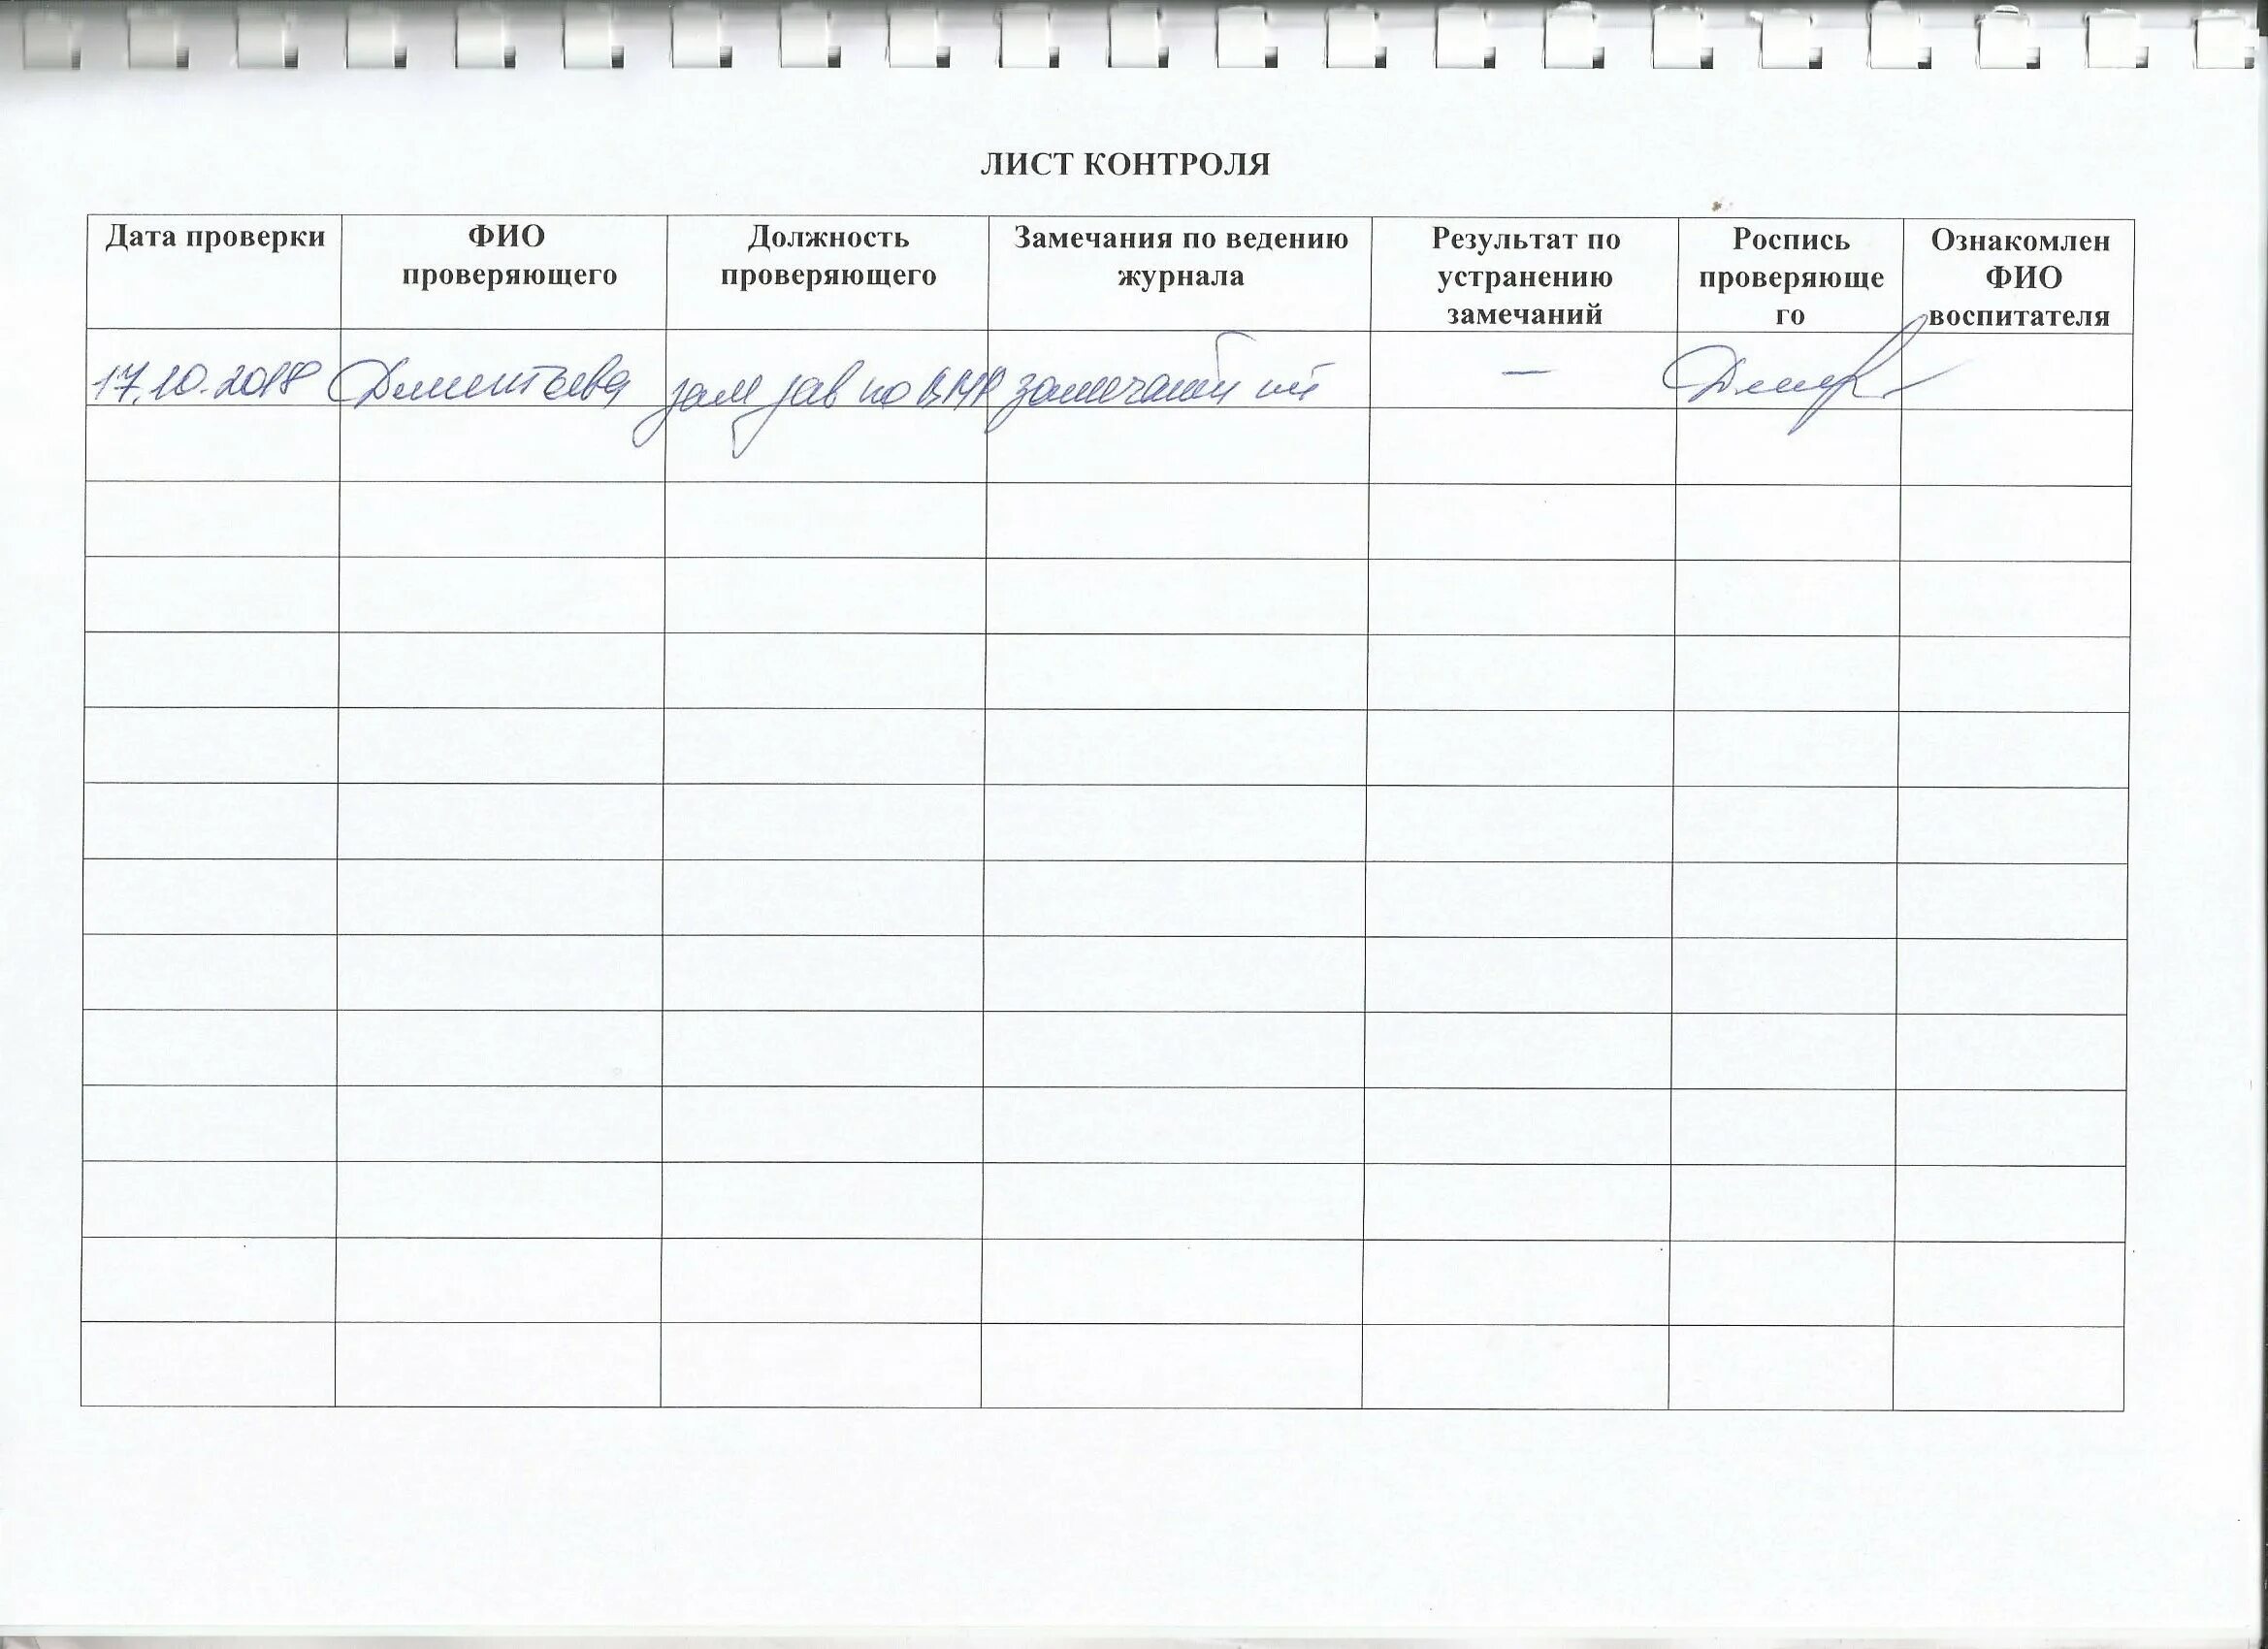 ЛИСТ КОНТРОЛЯ
Дата проверки ФИО проверяющего Должность проверяющего Замечания по ведению журнала Результат по устранению замечаний Роспись проверяющего Ознакомлен ФИО воспитателя
17.10.2018 Дементьева зам зав по ВМР замечаний нет —